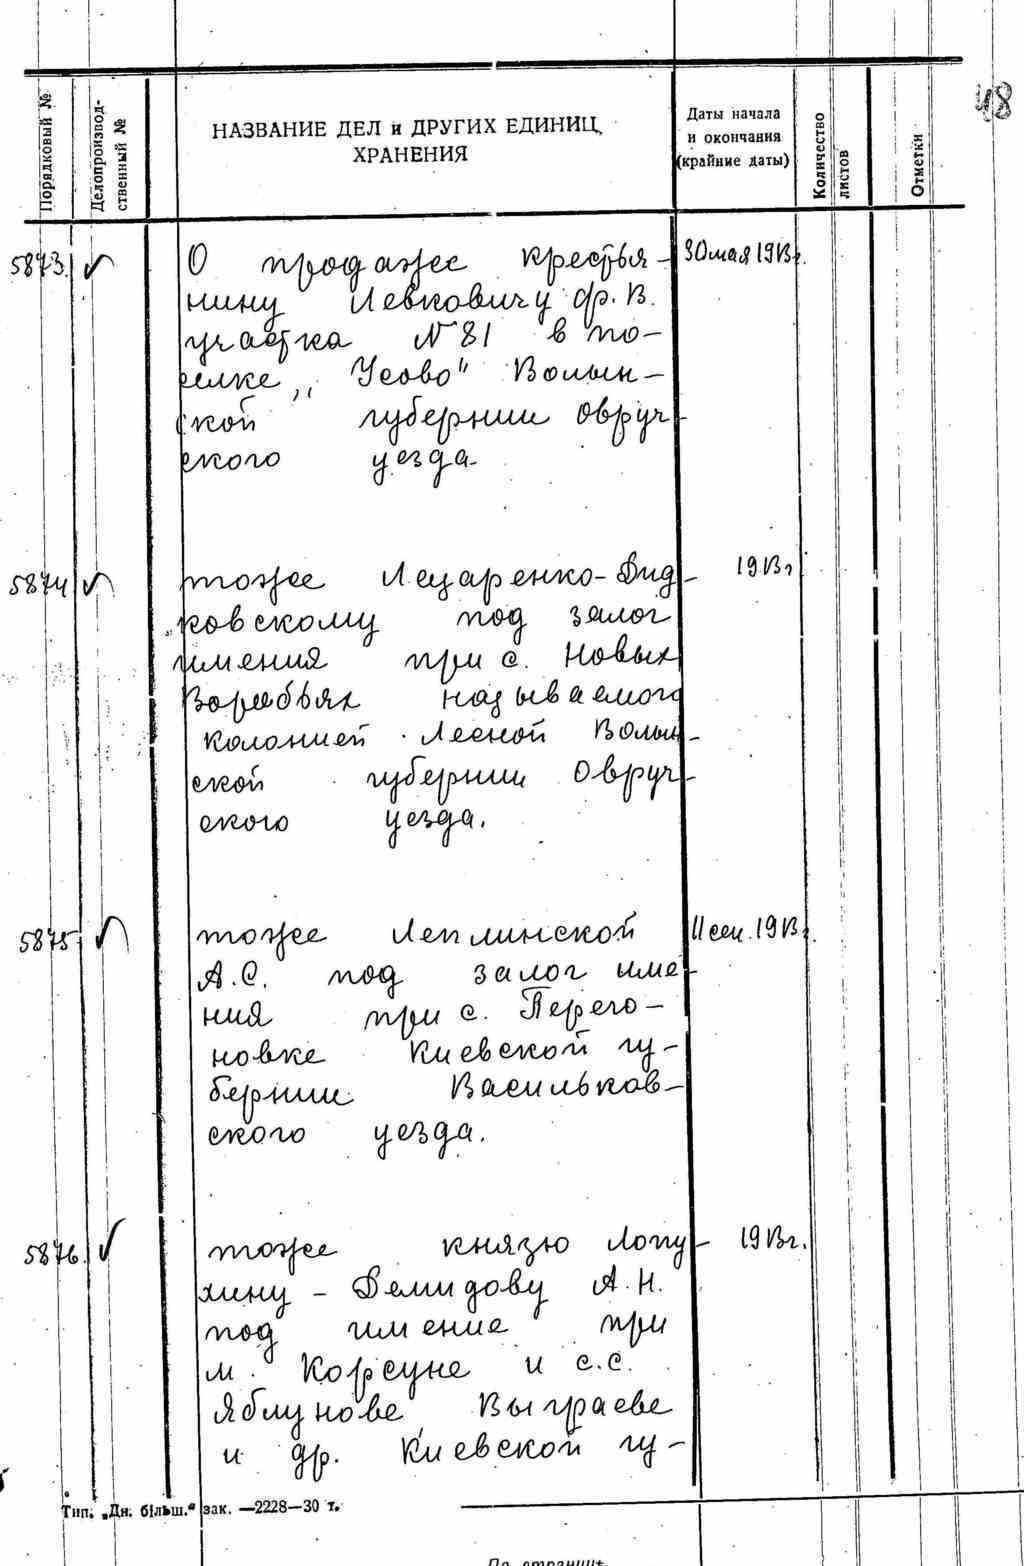 48
Порядковый №
Делопроизвод-
ственный №
НАЗВАНИЕ ДЕЛ и ДРУГИХ ЕДИНИЦ
ХРАНЕНИЯ
Даты начала
и окончания
(крайние даты)
Количество
листов
Отметки
5873. О продаже крестья- 30 мая 1913г.
нину Левковичу Ф.В.
участка № 81 в по-
селке „Усово" Волын-
ской губернии Овруч-
ского уезда.
5874 тоже Лецаренко-Дид- 1913г
ковскому под залог
имения при с. Новых
Воробьях называемого
колонией Лесной Волын-
ской губернии Овруч-
ского уезда.
5875 тоже Леплинской 11 сен. 1913г.
А.С. под залог име-
ния при с. Перего-
новке Киевской гу-
бернии Васильков-
ского уезда.
5876. тоже князю Лопу- 1913г.
хину-Демидову А.Н.
под имение при
м. Корсуне и с.с.
Яблунове, Выграеве
и др. Киевской гу-
Тип. „Дн. більш." зак. —2228—30 т.
По странице